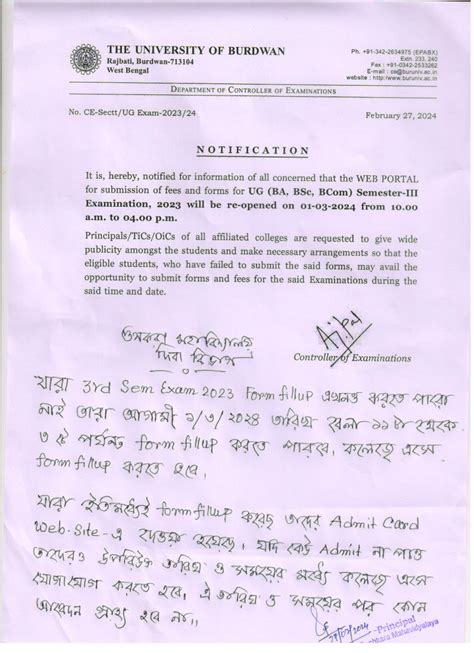 THE UNIVERSITY OF BURDWAN
Rajbati, Burdwan-713104
West Bengal
Ph. +91-342-2634975 (EPABX)
Extn. 233, 240
Fax : +91-0342-2533282
E-mail : ce@buruniv.ac.in
website : http:/www.buruniv.ac.in
DEPARTMENT OF CONTROLLER OF EXAMINATIONS
No. CE-Sectt/UG Exam-2023/24
February 27, 2024
NOTIFICATION
It is, hereby, notified for information of all concerned that the WEB PORTAL
for submission of fees and forms for UG (BA, BSc, BCom) Semester-III
Examination, 2023 will be re-opened on 01-03-2024 from 10.00
a.m. to 04.00 p.m.
Principals/TiCs/OiCs of all affiliated colleges are requested to give wide
publicity amongst the students and make necessary arrangements so that the
eligible students, who have failed to submit the said forms, may avail the
opportunity to submit forms and fees for the said Examinations during the
said time and date.
মহাবিদ্যালয়
দিবা বিভাগ
Controller of Examinations
যারা 3rd Sem Exam 2023 Form fillup এখনও করতে পারো
নাই তারা আগামী ১/৩/২০২৪ তারিখ বেলা ১১টা থেকে
৩ টে পর্যন্ত form fillup করতে পারবে, কলেজে এসে
form fillup করতে হবে।
যারা ইতিমধ্যেই form fillup করেছ তাদের Admit Card
Web-Site-এ দেওয়া হয়েছে, যদি কেউ Admit না পাও
তাদেরও উপরিউক্ত তারিখ ও সময়ের মধ্যে কলেজে এসে
যোগাযোগ করতে হবে, ঐ তারিখ ও সময়ের পর কোন
আবেদন গ্রাহ্য হবে না।
Principal
Mahavidyalaya